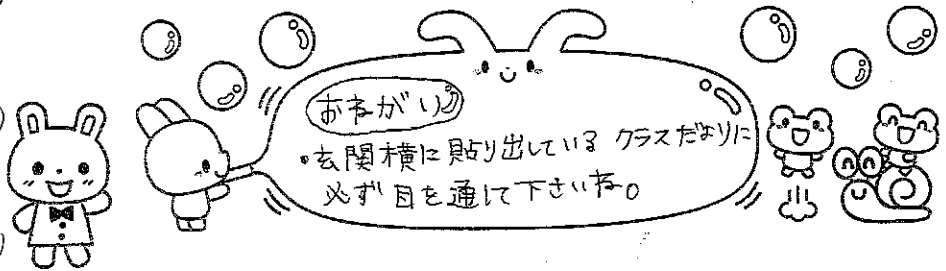 おねがい
・玄関横に貼り出している クラスだよりに
必ず目を通して下さいね。